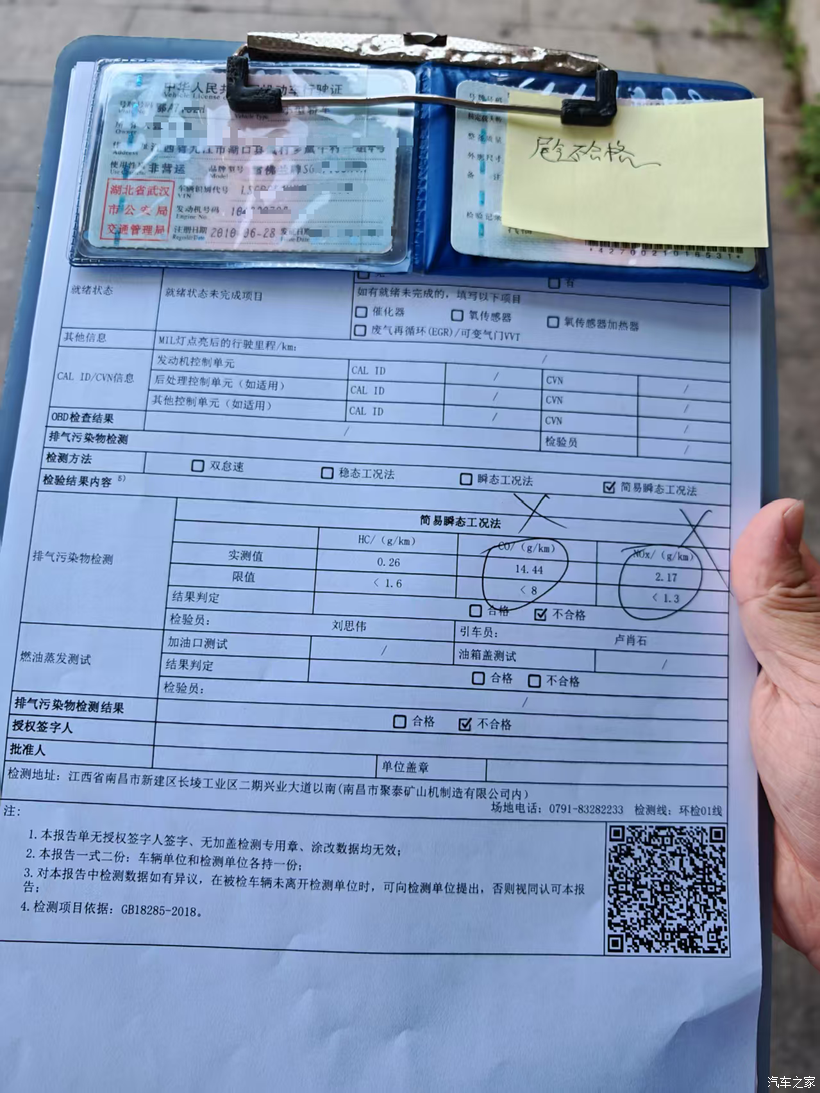 中华人民共 机动车行驶证
使用性质 非营运 品牌型号
车辆识别代号
发动机号码
注册日期 2010-06-28
湖北省武汉
市公安局
交通管理局
尾气不合格
检验记录
*4270021016531*
就绪状态 就绪状态未完成项目
如有就绪未完成的，填写以下项目
☐ 催化器 ☐ 氧传感器 ☐ 氧传感器加热器
☐ 废气再循环(EGR)/可变气门VVT
其他信息 MIL灯点亮后的行驶里程/km： /
CAL ID/CVN信息 发动机控制单元 CAL ID / CVN /
后处理控制单元（如适用） CAL ID / CVN /
其他控制单元（如适用） CAL ID / CVN /
OBD检查结果 / 检验员 /
排气污染物检测
检测方法 ☐ 双怠速 ☐ 稳态工况法 ☐ 瞬态工况法 ☑ 简易瞬态工况法
检验结果内容 5)
简易瞬态工况法
排气污染物检测 HC/（g/km） CO/（g/km） NOx/（g/km）
实测值 0.26 14.44 2.17
限值 <1.6 <8 <1.3
结果判定 ☐ 合格 ☑ 不合格
检验员： 刘思伟 引车员： 卢肖石
燃油蒸发测试 加油口测试 / 油箱盖测试 /
结果判定 ☐ 合格 ☐ 不合格
检验员： /
排气污染物检测结果 ☐ 合格 ☑ 不合格
授权签字人
批准人 单位盖章
检测地址：江西省南昌市新建区长堎工业区二期兴业大道以南(南昌市聚泰矿山机制造有限公司内)
场地电话：0791-83282233 检测线：环检01线
注:
1.本报告单无授权签字人签字、无加盖检测专用章、涂改数据均无效;
2.本报告一式二份：车辆单位和检测单位各持一份;
3.对本报告中检测数据如有异议，在被检车辆未离开检测单位时，可向检测单位提出，否则视同认可本报
告;
4.检测项目依据：GB18285-2018。
汽车之家